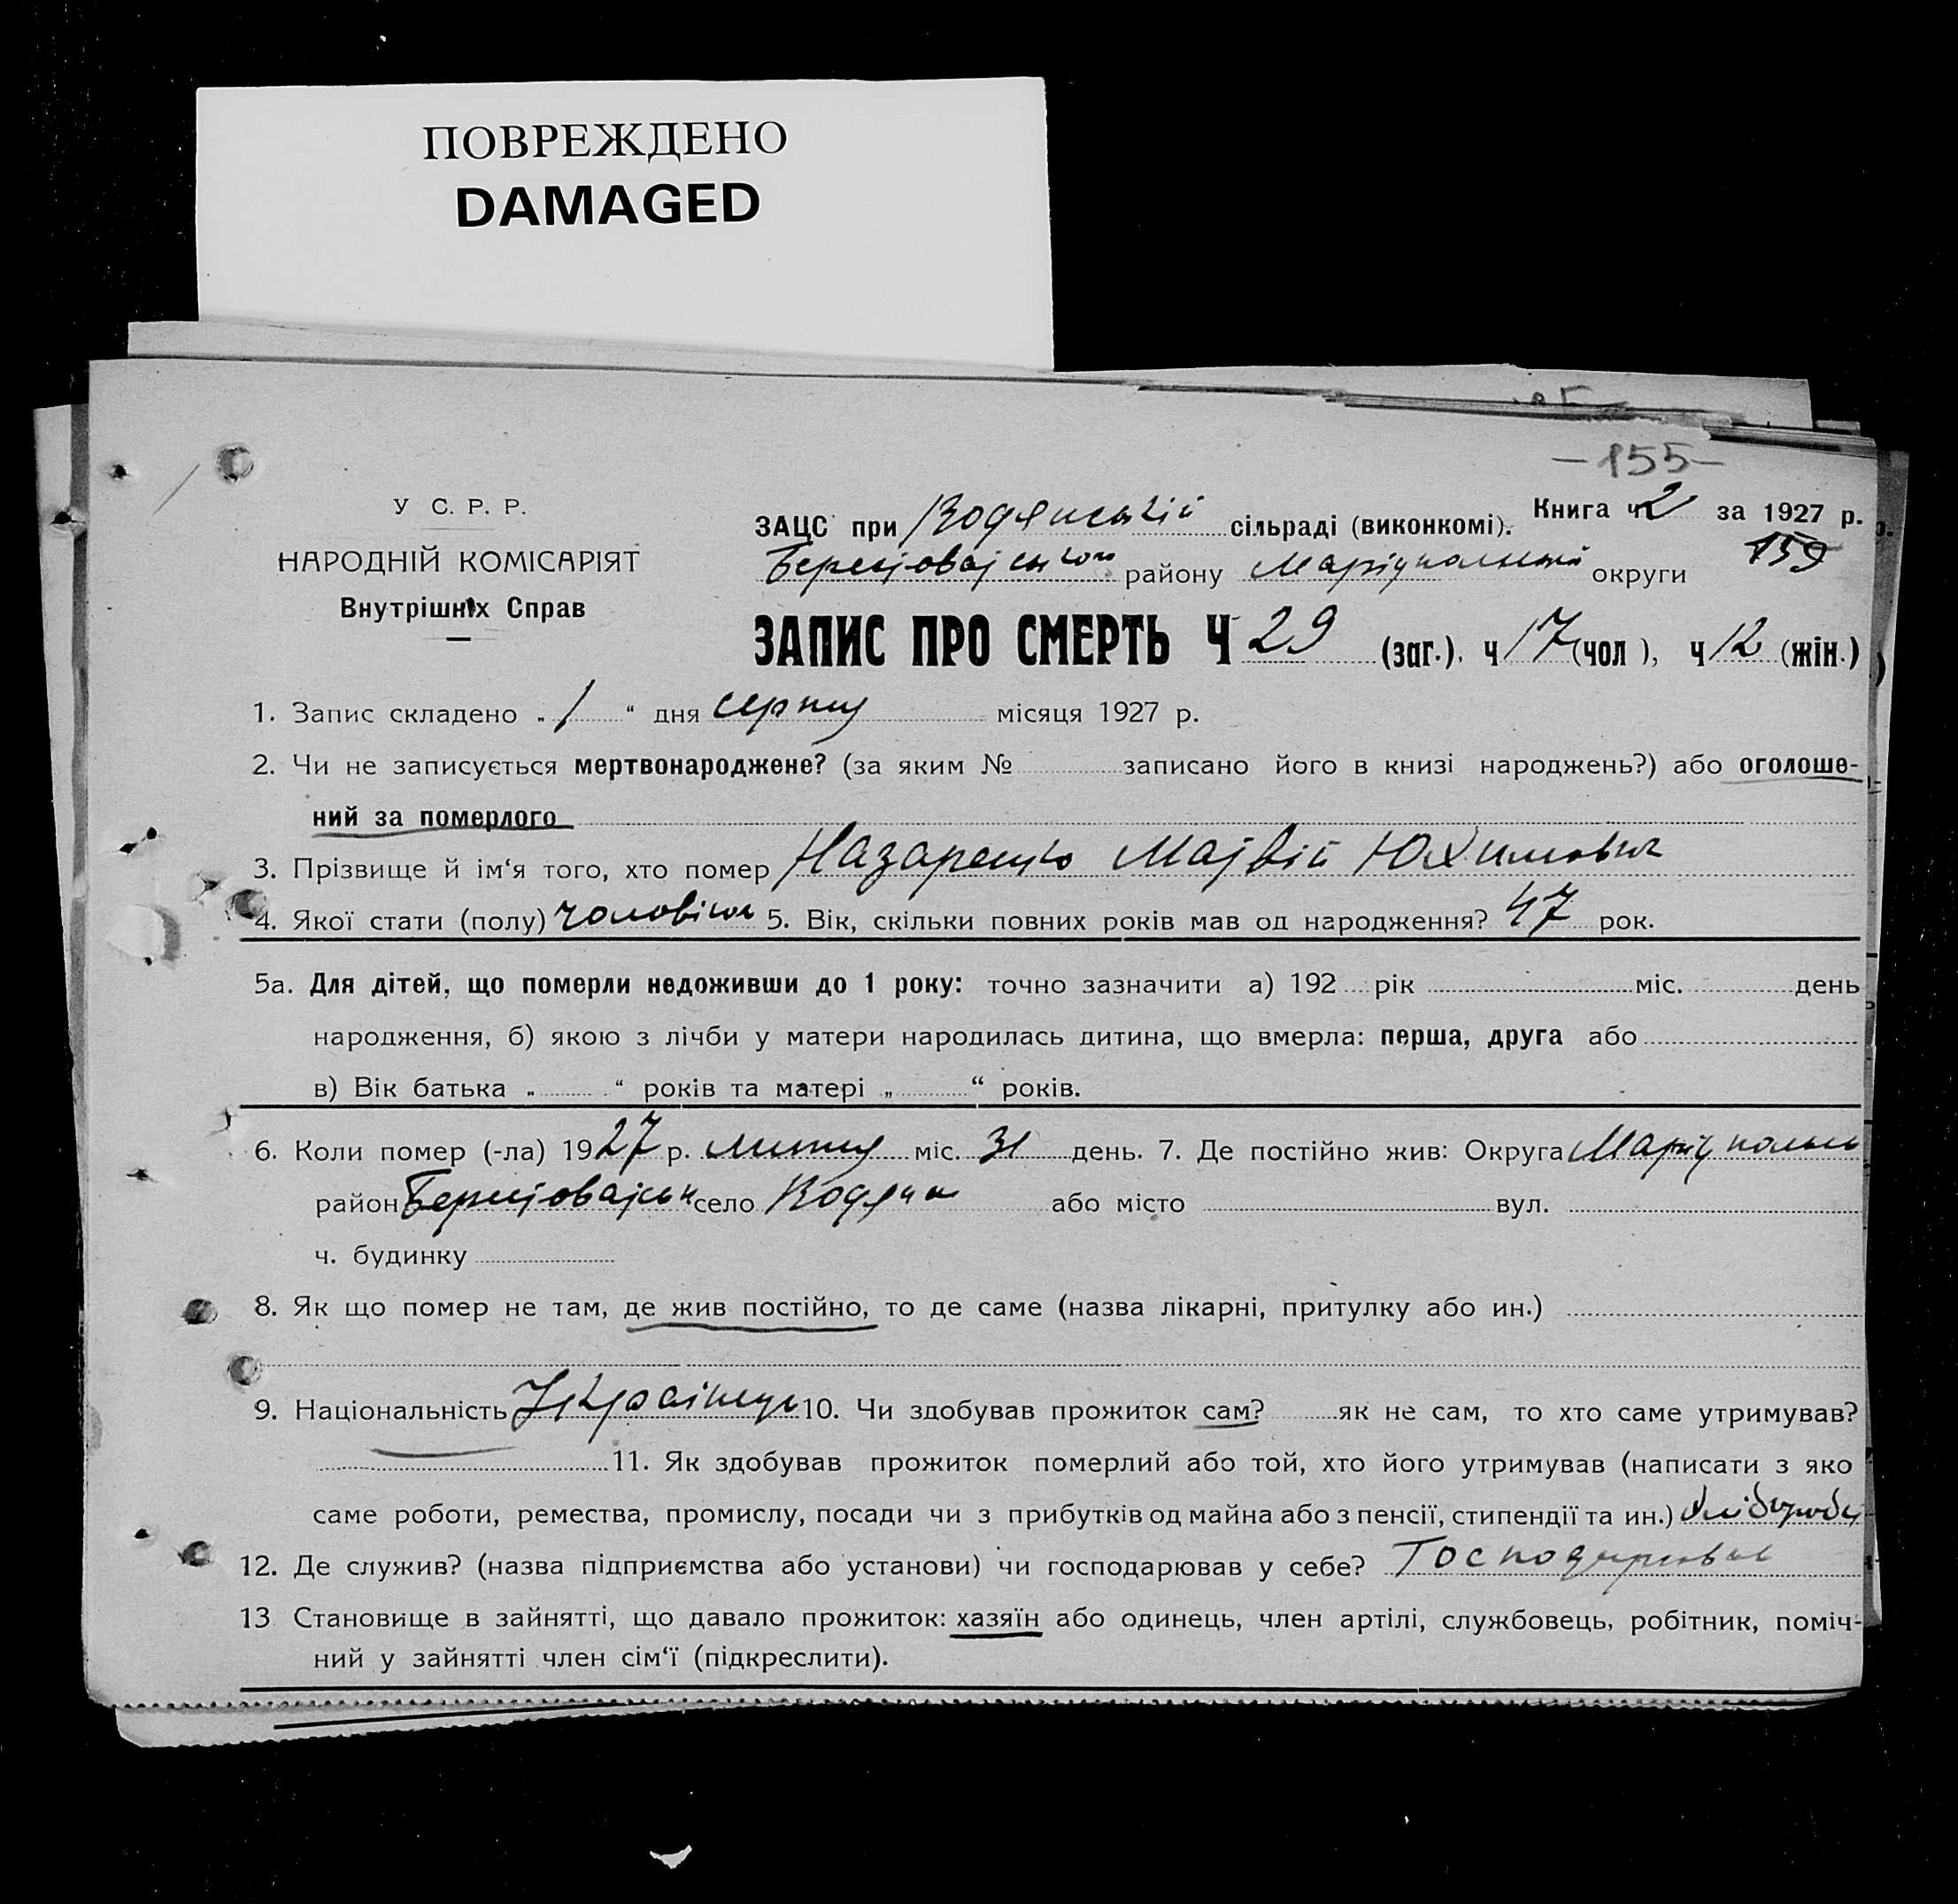 ПОВРЕЖДЕНО
DAMAGED
— 155 —
У С. Р. Р.
НАРОДНІЙ КОМІСАРІЯТ
Внутрішніх Справ
ЗАЦС при Водянській сільраді (виконкомі). Книга ч 2 за 1927 р.
району Маріупольської округи 159
ЗАПИС ПРО СМЕРТЬ Ч 29 (заг.). ч 17 (чол ), ч 12 (жін.)
1. Запис складено „ 1 “ дня серпня місяця 1927 р.
2. Чи не записується мертвонароджене? (за яким № записано його в книзі народжень?) або оголоше-
ний за померлого
3. Прізвище й ім‘я того, хто помер Назаренко Матвій Юхимович
4. Якої стати (полу) чоловіча 5. Вік, скільки повних років мав од народження? 47 рок.
5а. Для дітей, що померли недоживши до 1 року: точно зазначити а) 192 рік міс. день
народження, б) якою з лічби у матери народилась дитина, що вмерла: перша, друга або
в) Вік батька „ “ років та матері „ “ років.
6. Коли помер (-ла) 1927 р. липня міс. 31 день. 7. Де постійно жив: Округа Маріупольськ
район село Водяна або місто вул.
ч. будинку
8. Як що помер не там, де жив постійно, то де саме (назва лікарні, притулку або ин.)
9. Національність Українець 10. Чи здобував прожиток сам? як не сам, то хто саме утримував?
11. Як здобував прожиток померлий або той, хто його утримував (написати з яко
саме роботи, ремества, промислу, посади чи з прибутків од майна або з пенсії, стипендії та ин.) хлібороб
12. Де служив? (назва підприємства або установи) чи господарював у себе? Господарював
13 Становище в зайнятті, що давало прожиток: хазяїн або одинець, член артілі, службовець, робітник, поміч-
ний у зайнятті член сім‘ї (підкреслити).